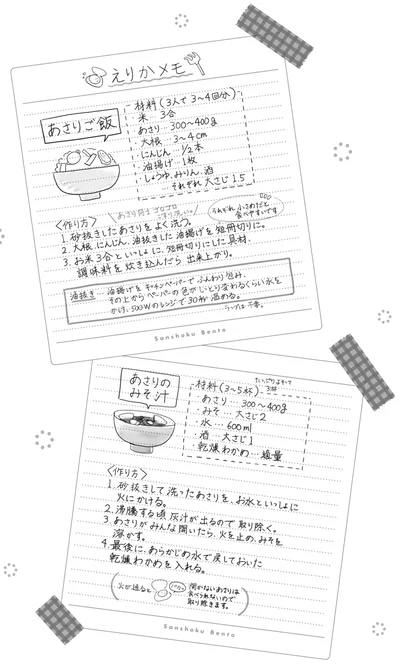 えりかメモ
あさりご飯
材料(3人で3〜4回分)
米 3合
あさり 300〜400g
大根 3〜4cm
にんじん 1/2本
油揚げ 1枚
しょうゆ、みりん、酒
…それぞれ 大さじ1.5
〈作り方〉
あさり同士ゴロゴロ
こすり洗い
うちは小さめだと
食べやすいです
1. 砂抜きしたあさりをよく洗う。
2. 大根、にんじん、油抜きした油揚げを短冊切りに。
3. お米3合といっしょに、短冊切りにした具材、
調味料を炊き込んだら 出来上がり。
油抜き…油揚げをキッチンペーパーでふんわり包み、
その上からペーパーの色がしっとり変わるくらい水を
かけ、500Wのレンジで30秒 温める。
ラップは不要。
Sanshoku Bento
あさりの
みそ汁
材料(3〜5杯)
・あさり … 300〜400g
・みそ … 大さじ2
・水 … 600ml
・酒 … 大さじ1
・乾燥わかめ … 適量
〈作り方〉
1. 砂抜きして洗ったあさりを、お水といっしょに
火にかける。
2. 沸騰する頃 灰汁が出るので取り除く。
3. あさりがみんな開いたら、火を止め、みそを
溶かす。
4. 最後に、あらかじめ水で戻しておいた
乾燥わかめを入れる。
火が通ると
開かないあさりは
食べられないので
取り除きます。
Sanshoku Bento